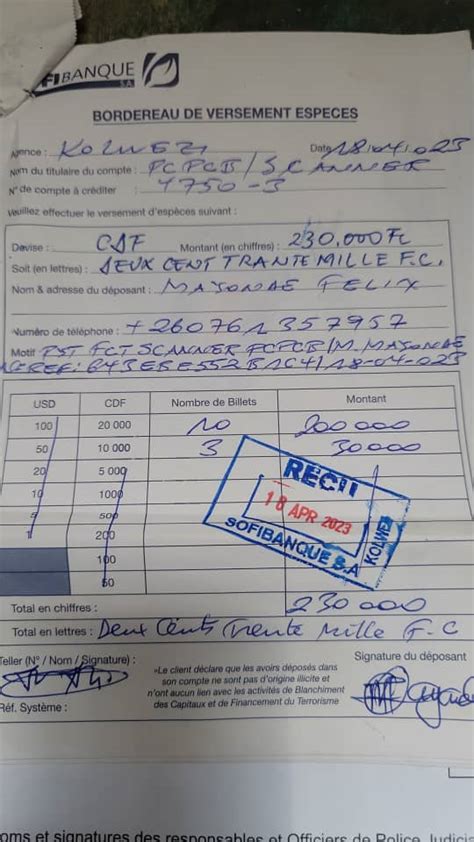 FIBANQUE SA
BORDEREAU DE VERSEMENT ESPECES
Agence : KOLWEZI Date 18.04.023
Nom du titulaire du compte : PCPCB/SCANNER
N° de compte à créditer : 4750-3
Veuillez effectuer le versement d'espèces suivant :
Devise : CDF Montant (en chiffres) : 230.000 FC
Soit (en lettres) : DEUX CENT TRANTE MILLE F.C.
Nom & adresse du déposant : MAJONDE FELIX
Numéro de téléphone : +260761357957
Motif PST FCT SCANNER PCPCB/M. MAJONDE
REF: 18-04-023
USD CDF Nombre de Billets Montant
100 20 000 10 200 000
50 10 000 3 30 000
20 5 000
10 1000
5 500
1 200
100
50
RECU
18 APR 2023
SOFIBANQUE S.A
KOLWEZI
Total en chiffres : 230 000
Total en lettres : Deux Cents Trente Mille F.C
Teller (N° / Nom / Signature) : Signature du déposant
"Le client déclare que les avoirs déposés dans
son compte ne sont pas d'origine illicite et
n'ont aucun lien avec les activités de Blanchiment
des Capitaux et de Financement du Terrorisme
Réf. Système :
oms et signatures des responsables et Officiers de Police Judicia